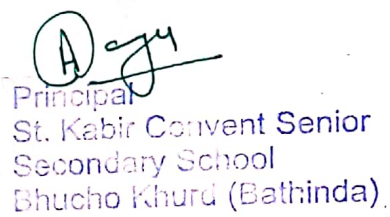 Principal
St. Kabir Convent Senior
Secondary School
Bhucho Khurd (Bathinda)